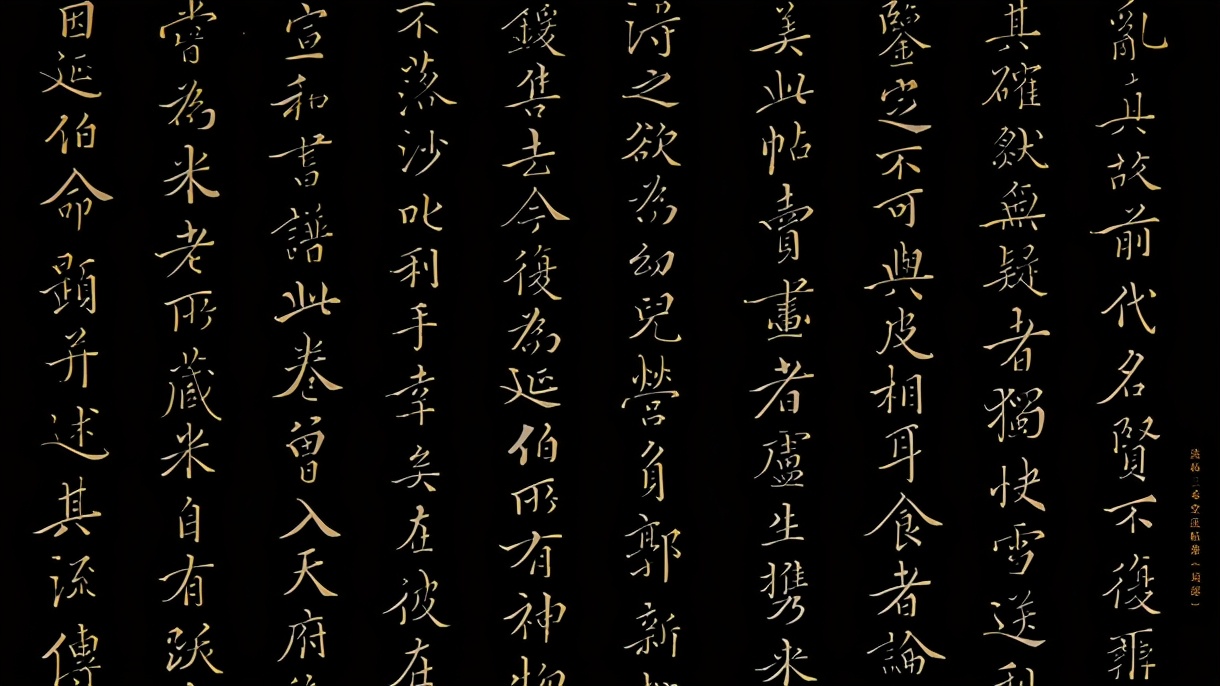 亂真故前代名賢不復辨
其確然無疑者獨快雪送利
鑒定不可與皮相耳食者論
美此帖賣畫者廬生攜来
得之欲為幼兒營負郭新
鍰售去今復為延伯所有神物
不落沙叱利手幸矣在彼在
宣和書譜此卷曾入天府
嘗為米老所藏米自有跋
因延伯命題并述其流傳